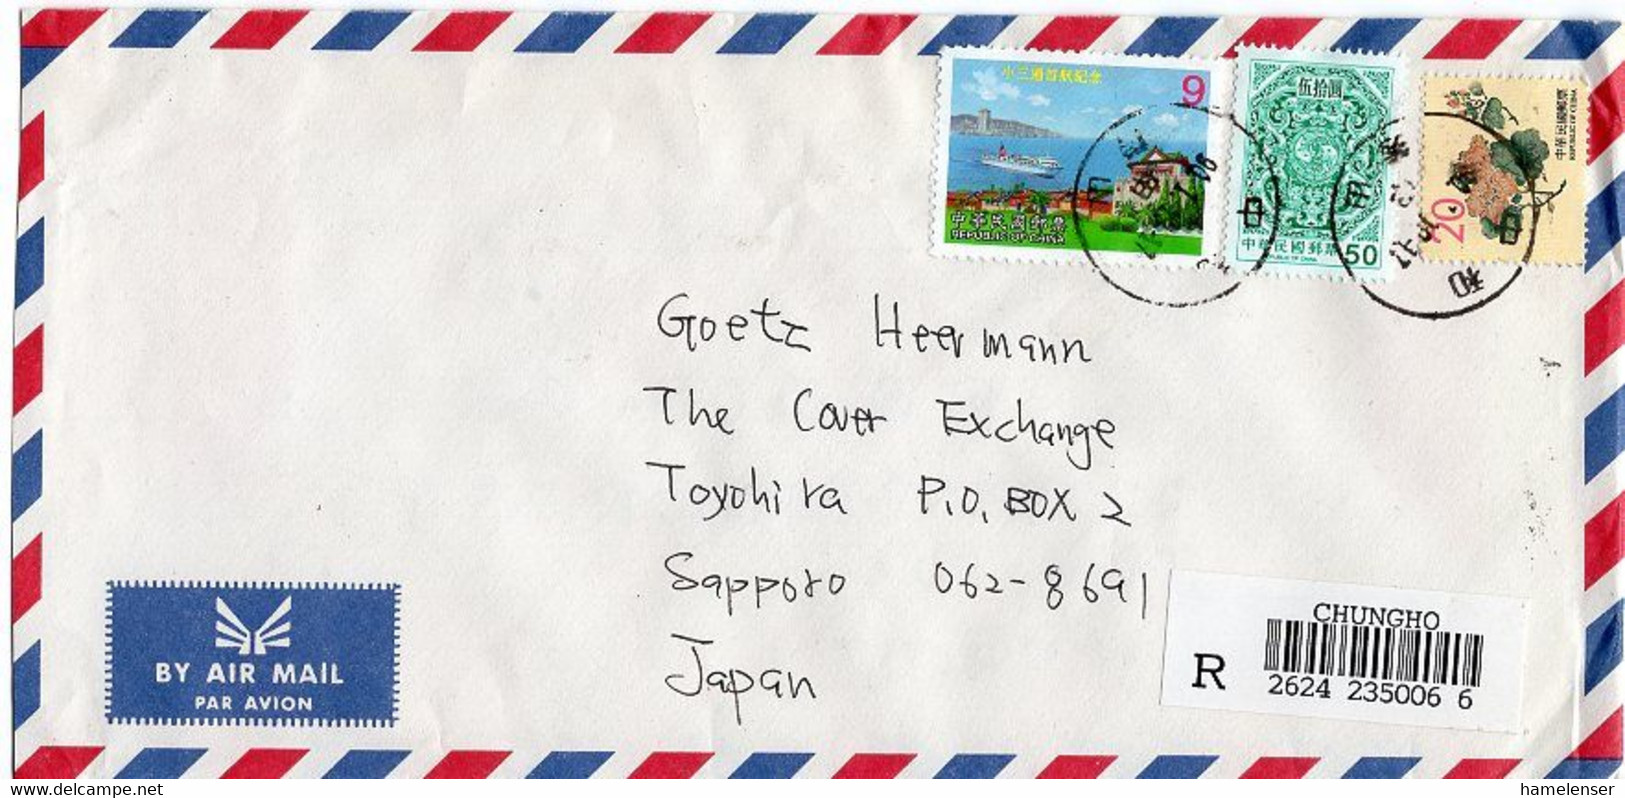 小三通首航紀念
9
中華民國郵票
REPUBLIC OF CHINA
伍拾圓
中華民國郵票
REPUBLIC OF CHINA
50
中華民國郵票
REPUBLIC OF CHINA
20
Goetz Heermann
The Cover Exchange
Toyohira P.O. BOX 2
Sapporo 062-8691
Japan
BY AIR MAIL
PAR AVION
CHUNGHO
R
2624 235006 6
www.delcampe.net
hamelenser